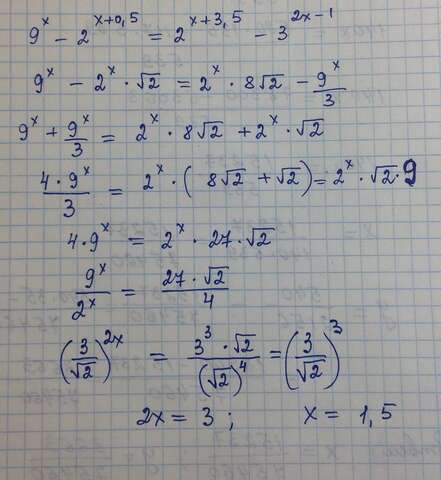 9^x − 2^(x+0,5) = 2^(x+3,5) − 3^(2x−1)
9^x − 2^x · √2 = 2^x · 8√2 − 9^x/3
9^x + 9^x/3 = 2^x · 8√2 + 2^x · √2
4·9^x/3 = 2^x · (8√2 + √2) = 2^x · √2 · 9
4·9^x = 2^x · 27·√2
9^x/2^x = 27·√2/4
(3/√2)^(2x) = 3^3·√2/(√2)^4 = (3/√2)^3
2x = 3; x = 1,5